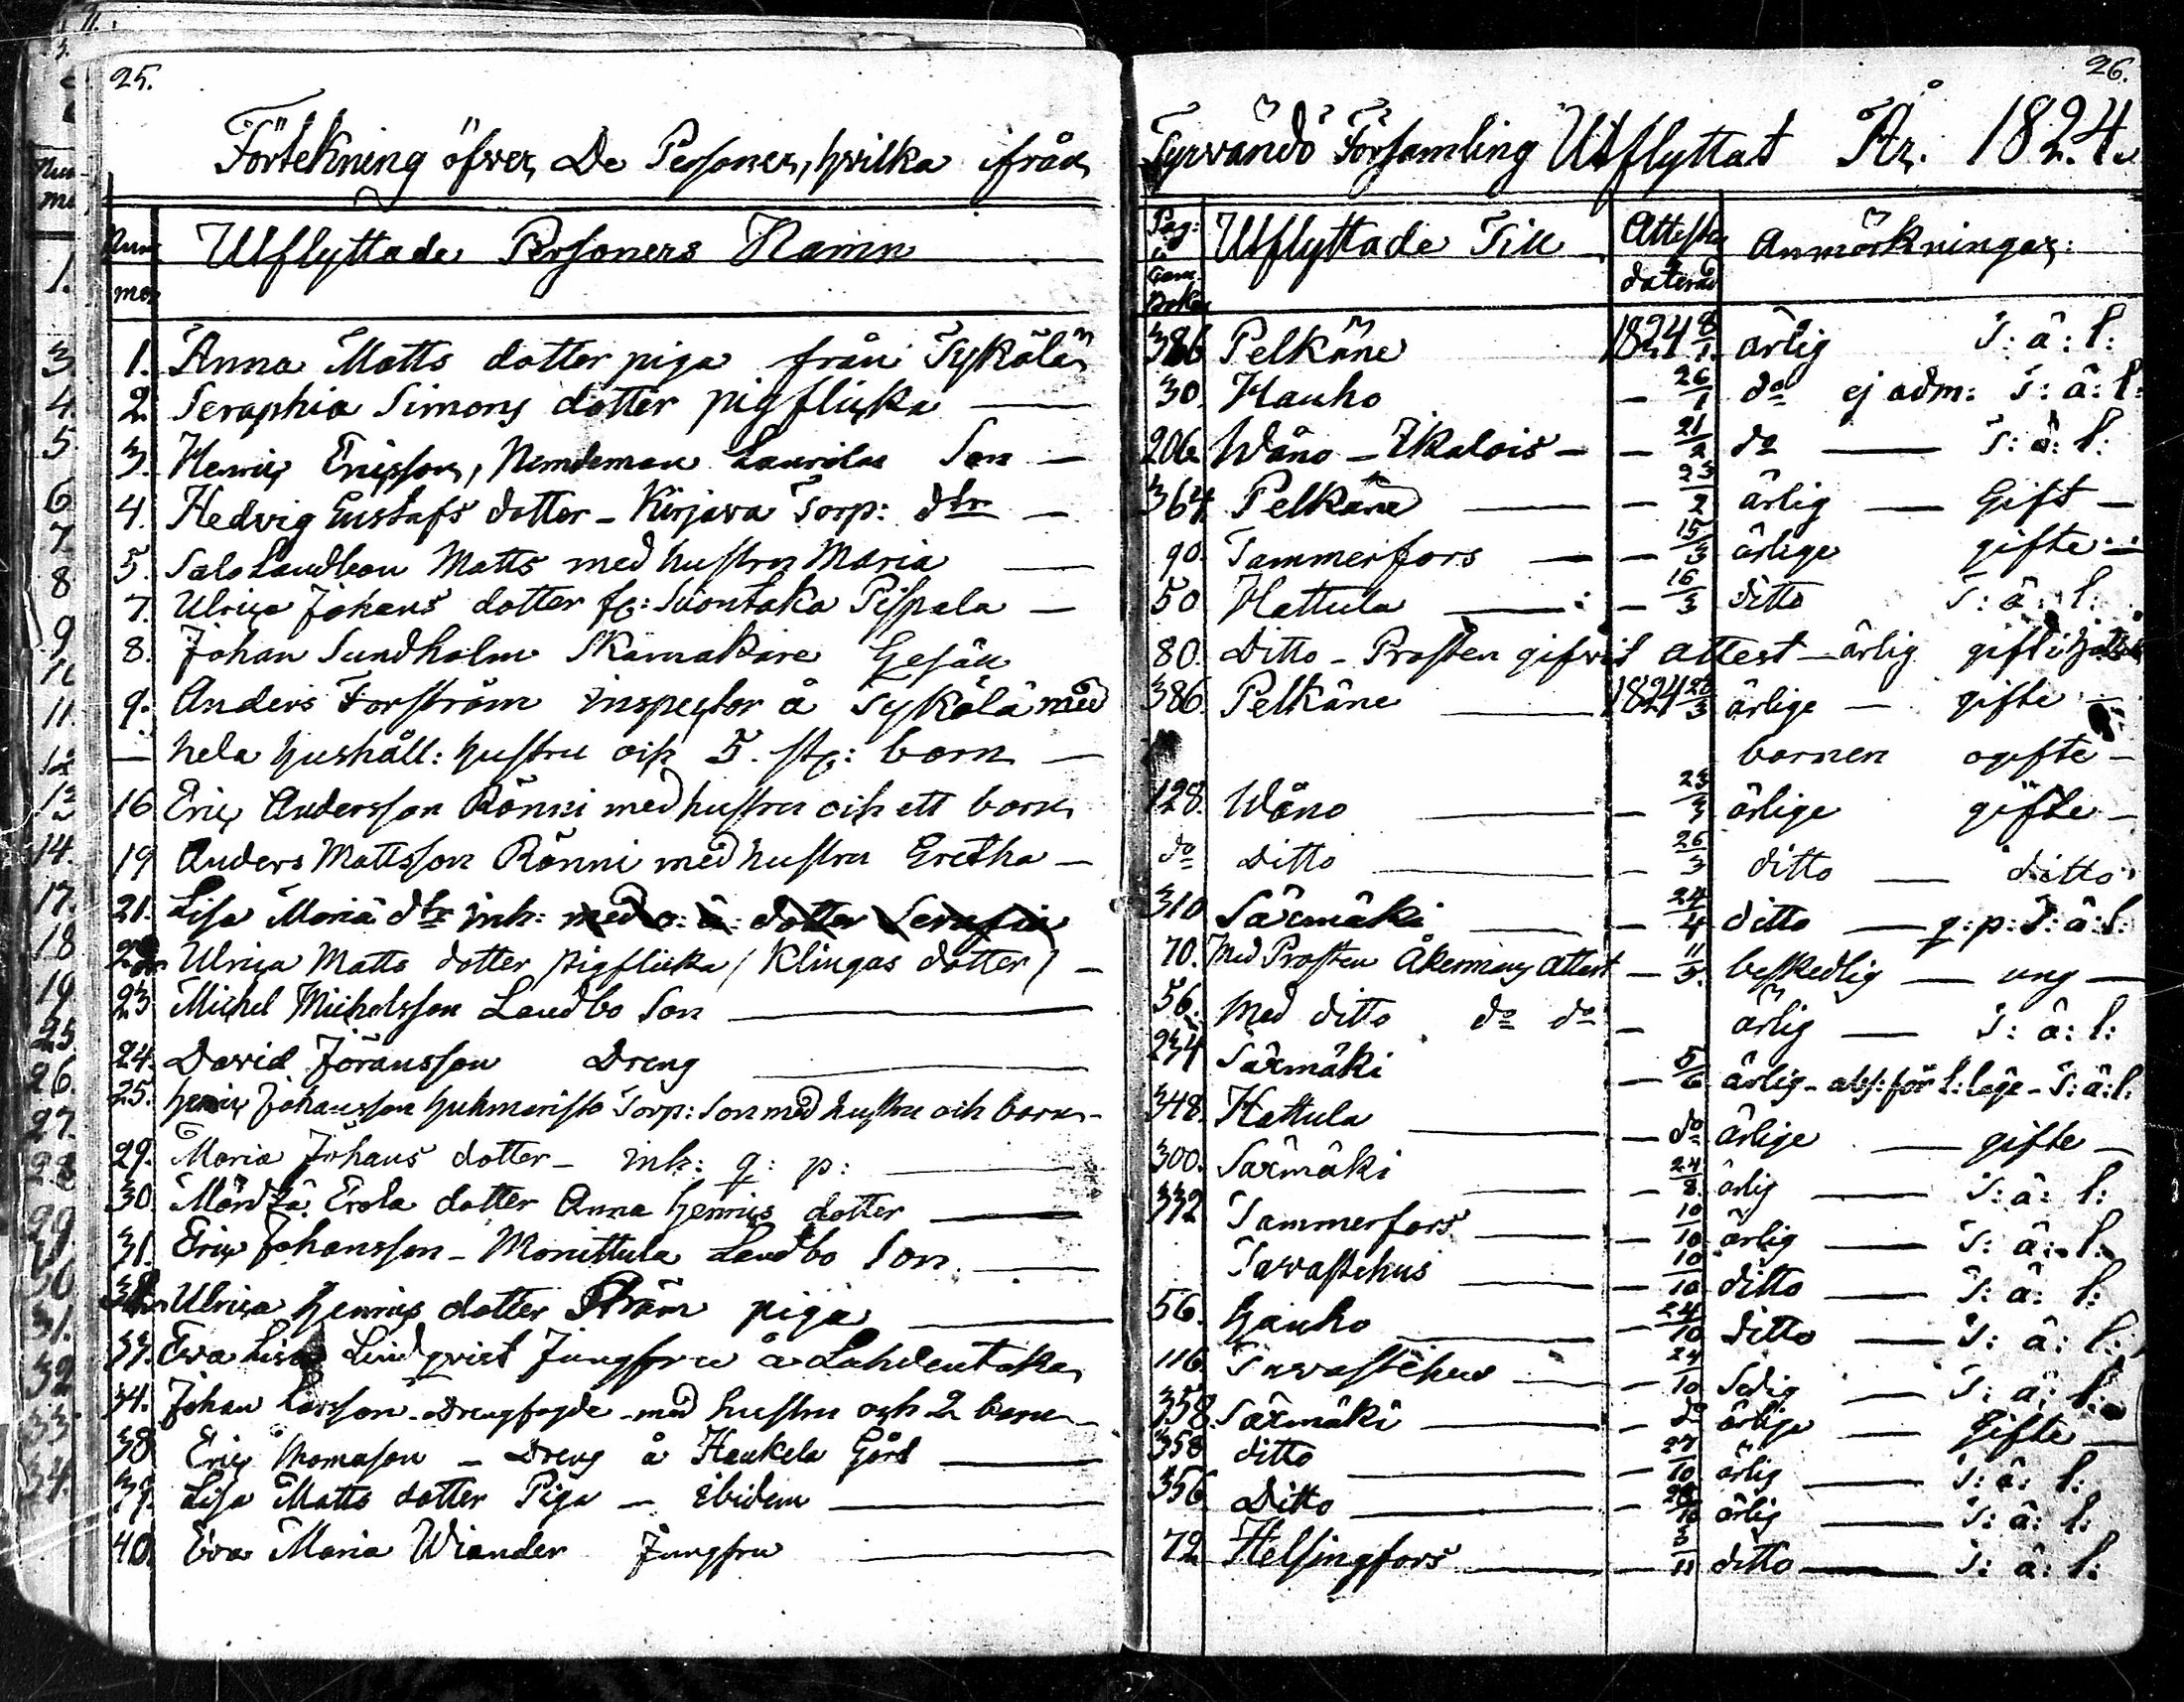 25.
Förtekning öfver De Personer, hvilka ifrån
Num
mer
Utflyttade Personers Namn
1. Anna Matts dotter piga från Syskölä
2. Seraphia Simons dotter pigflicka —
3. Henric Ericsson, Nemdeman Laurilas Son —
4. Hedvig Gustafs dotter - Kirjava Torp: dtr —
5. Salo Landbon Matts med hustru Maria —
7. Ulrica Johans dotter fr: Suontaka Pispala —
8. Johan Sundholm Skomakare Gesäll
9. Anders Forström inspector å Syskölä med
— hela hushåll: hustru och 5. st: barn —
16 Eric Andersson Rönni med hustru och ett barn
19 Anders Mattsson Rönni med hustru Gretha —
21. Lisa Maria dtr inh: med o: ä: dotter Serafia
22 Ulrica Matts dotter pigflicka (Klingas dotter) —
23 Michel Michelsson Landbo Son —
24. David Jöransson Dreng —
25. Henric Johansson Huhmaristo Torp: Son med hustru och barn -
29. Maria Johans dotter - inh: q: p: —
30 Mördzä Erola dotter Anna Henrics dotter —
31. Eric Johansson - Monittula Landbo Son. —
32 Ulrica Henrics dotter Ström piga —
33. Eva Lisa Lindqvist Jungfru å Lahdentaka
34. Johan Larsson - Drengfogde - med hustru och 2 barn -
38 Eric Thomasson — Dreng å Haukela Gård —
39. Lisa Matts dotter Piga — ibidem —
40. Eva Maria Wiander Jungfru —
26.
Tyrvändö Församling Utflyttat År. 1824.
Pag:
i
Com.
Boken
Utflyttade Till
Attesten
daterad
Anmärkningar:
386 Pelkäne 1824 8/1. ärlig S: ä: l:
30. Hauho — 26/1 do ej adm: S: ä: l:
206. Wåno — Ikalois — — 21/2 do — S: ä: l:
364 Pelkäne — — 23/2 ärlig — Gift —
90. Tammerfors — — 15/3 ärlige gifte —
50 Hattula — — 16/3 ditto S: ä: l:
80. Ditto - Prosten gifvit attest — ärlig gift i
386. Pelkäne — 1824 23/3 ärlige — gifte —
barnen ogifte —
128. Wåno — — 23/3 ärlige gifte —
do Ditto — — 26/3 ditto — ditto
310 Säxmäki — — 24/4 ditto — q: p: S: ä: l:
70. Med Prosten Åkermans attest — 11/5. beskedlig — ung —
56. Med ditto do do — ärlig — S: ä: l:
234 Säxmäki — 5/6 ärlig - abs: för l: läge - S: ä: l:
348. Hattula — — do ärlige — gifte —
300. Säxmäki — — 24/8. ärlig — S: ä: l:
332 Tammerfors — — 10/10 ärlig — S: ä: l:
Tavastehus — — 10/10 ditto — S: ä: l:
56. Hauho — — 24/10 ditto — S: ä: l:
116 Tavastehus — — 24/10 Sedig — S: ä: l:
358. Säxmäki — — do ärlige — Gifte —
358 ditto — — 27/10 ärlig — S: ä: l:
356 Ditto — — 28/10 ärlig — S: ä: l:
72 Helsingfors — — 3/11 ditto — S: ä: l: